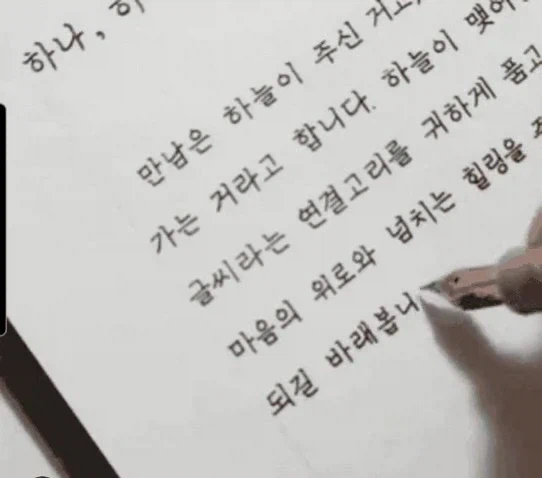 하나,
만남은 하늘이 주신 거고,
가는 거라고 합니다. 하늘이 맺어
글씨라는 연결고리를 귀하게 품고
마음의 위로와 넘치는 힐링을
되길 바래봅니